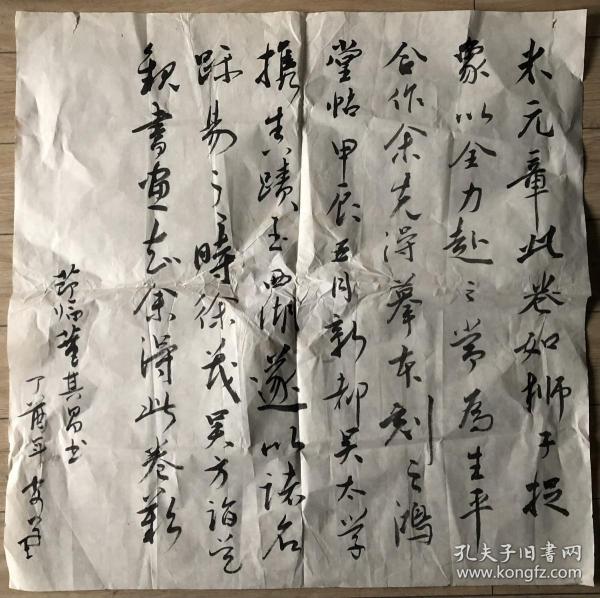 米元章此卷如狮子捉
象以全力赴之当为生平
合作余先得摹本刻之鸿
堂帖甲辰五月新都吴太学
携真蹟至西湖遂以诸名
跡易之时徐茂吴方诣吴
观书画知余得此卷歎
节临董其昌书
丁酉年
孔夫子旧书网
www.kongfz.com